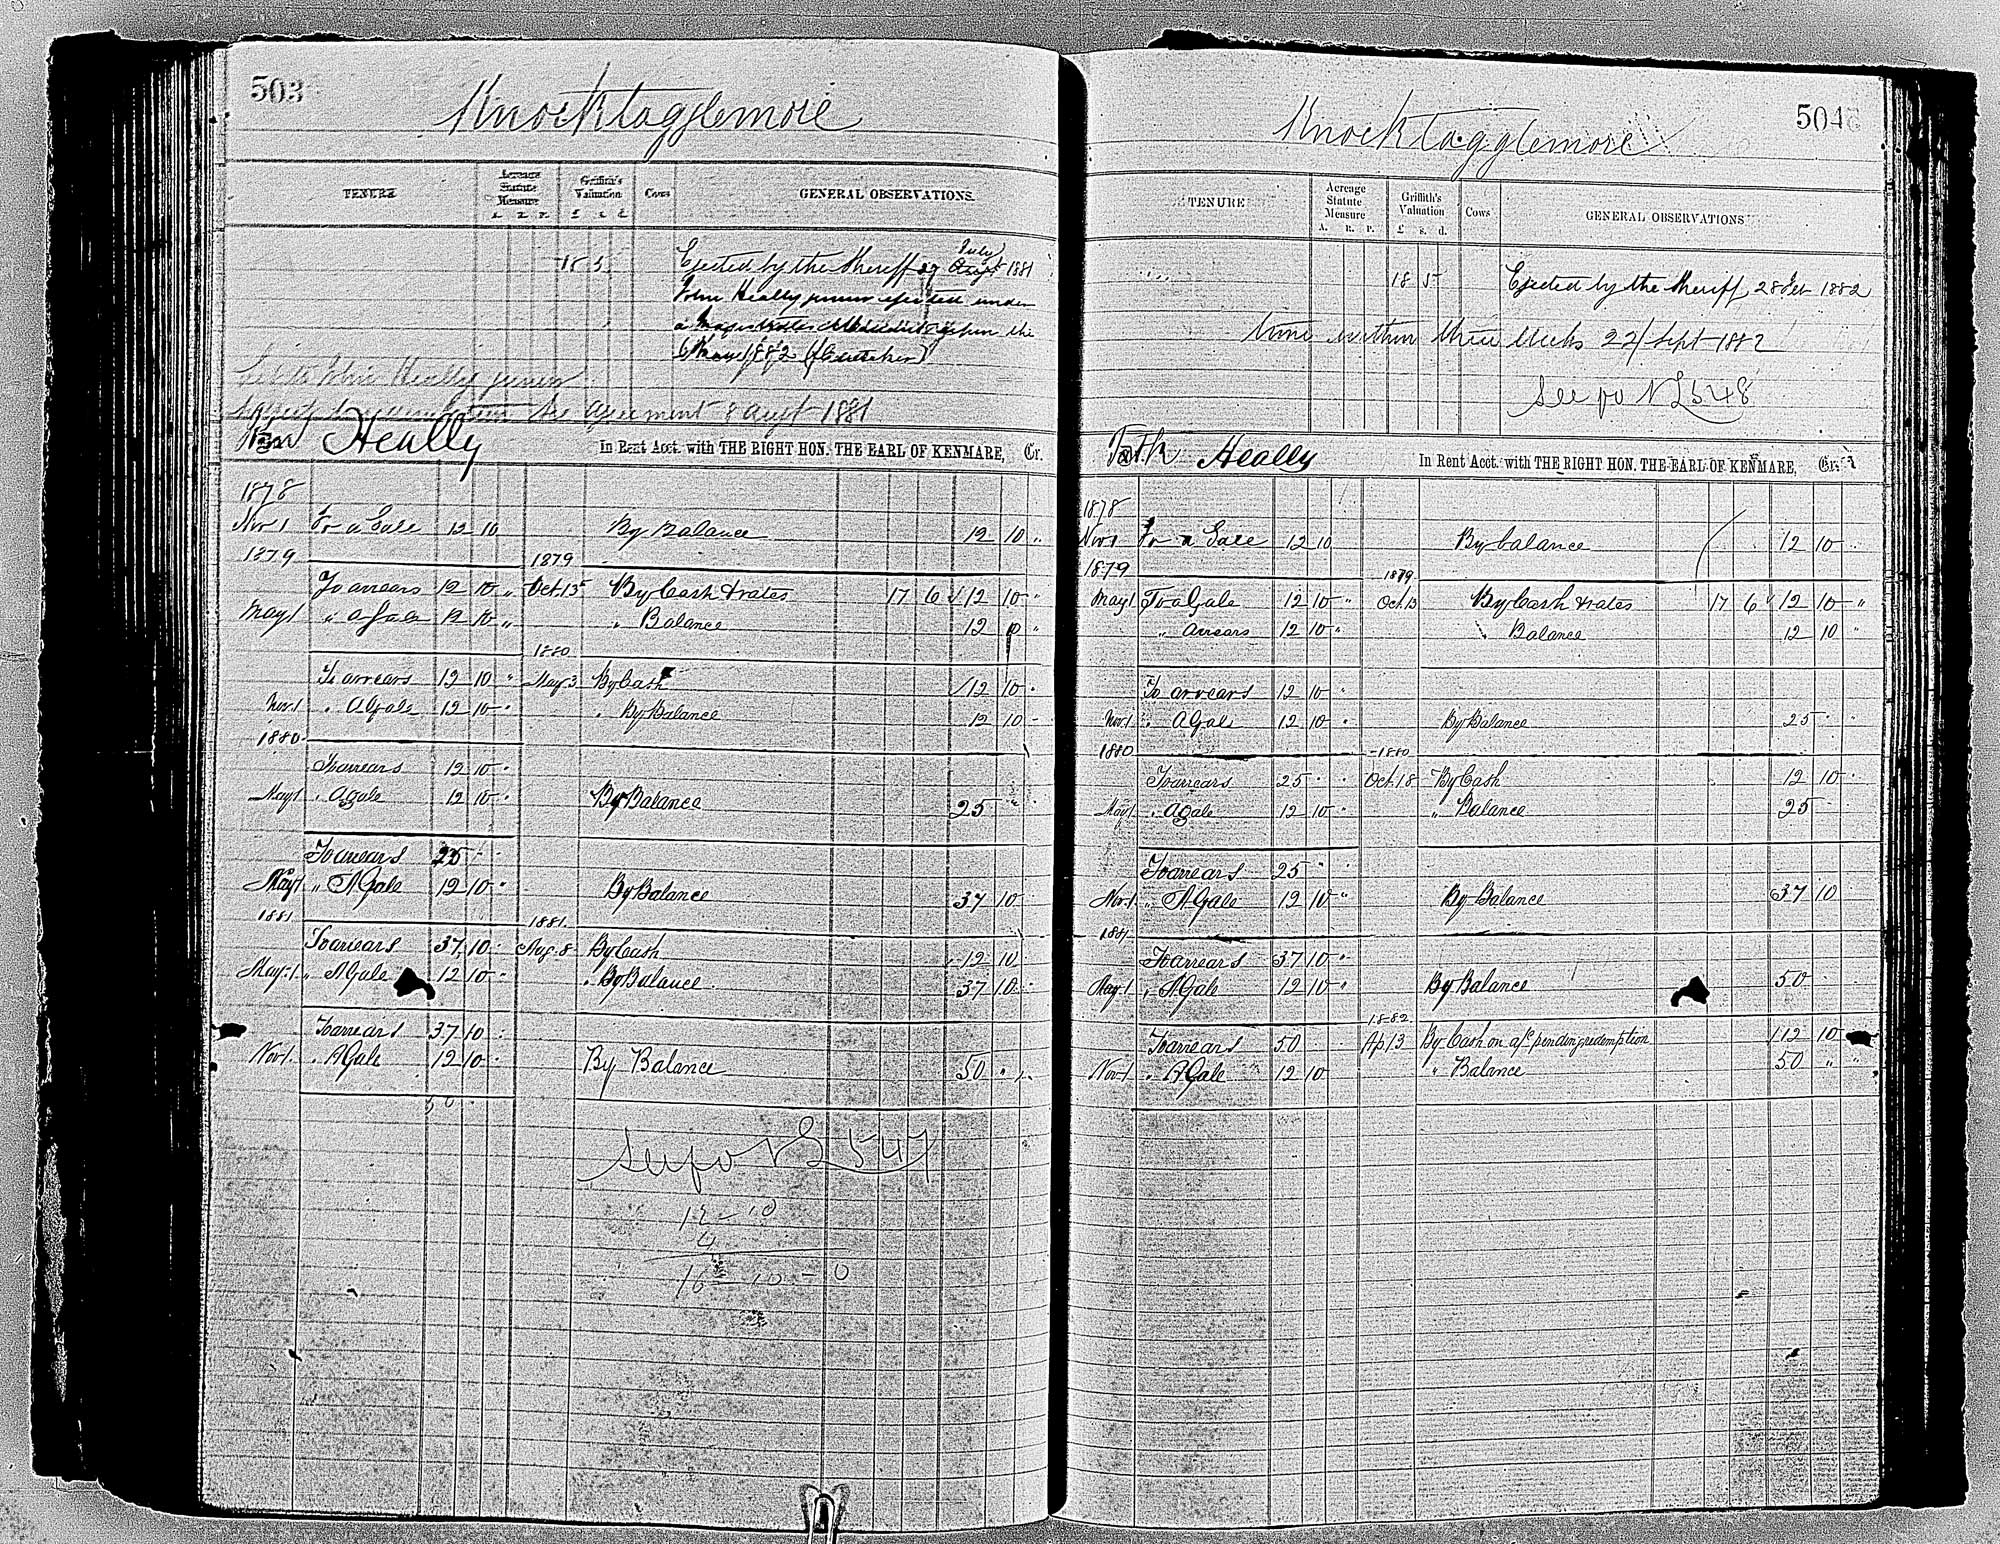 503
Knocktagglemore
TENURE Acreage Statute Measure Griffith's Valuation Cows GENERAL OBSERVATIONS.
A. R. P. £ s. d.
18 5 Ejected by the Sheriff 29 July Augt 1881
John Heally junior ejected under
a Magistrates upon the
6 May 1882 (Caretaker)
Let to John Heally junior
See Agreement 8 Augt 1881
Heally In Rent Acct. with THE RIGHT HON. THE EARL OF KENMARE, Cr.
1878
Nov 1 To a Gale 12 10 By Balance 12 10 "
1879 1879
To arrears 12 10 " Oct 13 By Cash & rates 17 6 √ 12 10 "
May 1 " a Gale 12 10 " " Balance 12 10 "
1880
To arrears 12 10 " May 3 By Cash √ 12 10 "
Nov. 1 " A Gale 12 10 " " By Balance 12 10 "
1880
To arrears 12 10 "
May 1 " A Gale 12 10 " By Balance 25 " "
To arrears 25 " "
May 1 " A Gale 12 10 " By Balance 37 10
1881 1881.
To arrears 37 10 " Aug. 8 By Cash 12 10
May. 1 " A Gale 12 10 " " By Balance 37 10 "
To arrears 37 10 "
Nov 1. " A Gale 12 10 " By Balance 50 " "
50 "
See fo NL 547
12 - 10
4
16 - 10 - 0
504
Knocktagglemore
TENURE Acreage Statute Measure Griffith's Valuation Cows GENERAL OBSERVATIONS
A. R. P. £ s. d.
18 5 Ejected by the Sheriff, 28 Feb 1882
within three weeks 22/Sept 1882
See fo NL 548
Patk Heally In Rent Acct. with THE RIGHT HON. THE EARL OF KENMARE, Cr.
1878
Nov 1 To a Gale 12 10 By balance 12 10
1879 1879
May 1 To a Gale 12 10 " Oct 13 By Cash & rates 17 6 " 12 10 "
" Arrears 12 10 " " Balance 12 10 "
To arrears 12 10 "
Nov. 1 " A Gale 12 10 " By Balance 25 " "
1880 1880
To arrears 25 " " Oct. 18 By Cash 12 10 "
May 1 " A Gale 12 10 " " Balance 25
To arrears 25 "
Nov. 1 " A Gale 12 10 " By Balance 37 10
1881
To arrears 37 10 "
May. 1 " A Gale 12 10 " By Balance 50
1882
To arrears 50 Ap 13 By Cash on a/c pending redemption √ 12 10
Nov. 1 " A Gale 12 10 " Balance 50 " "